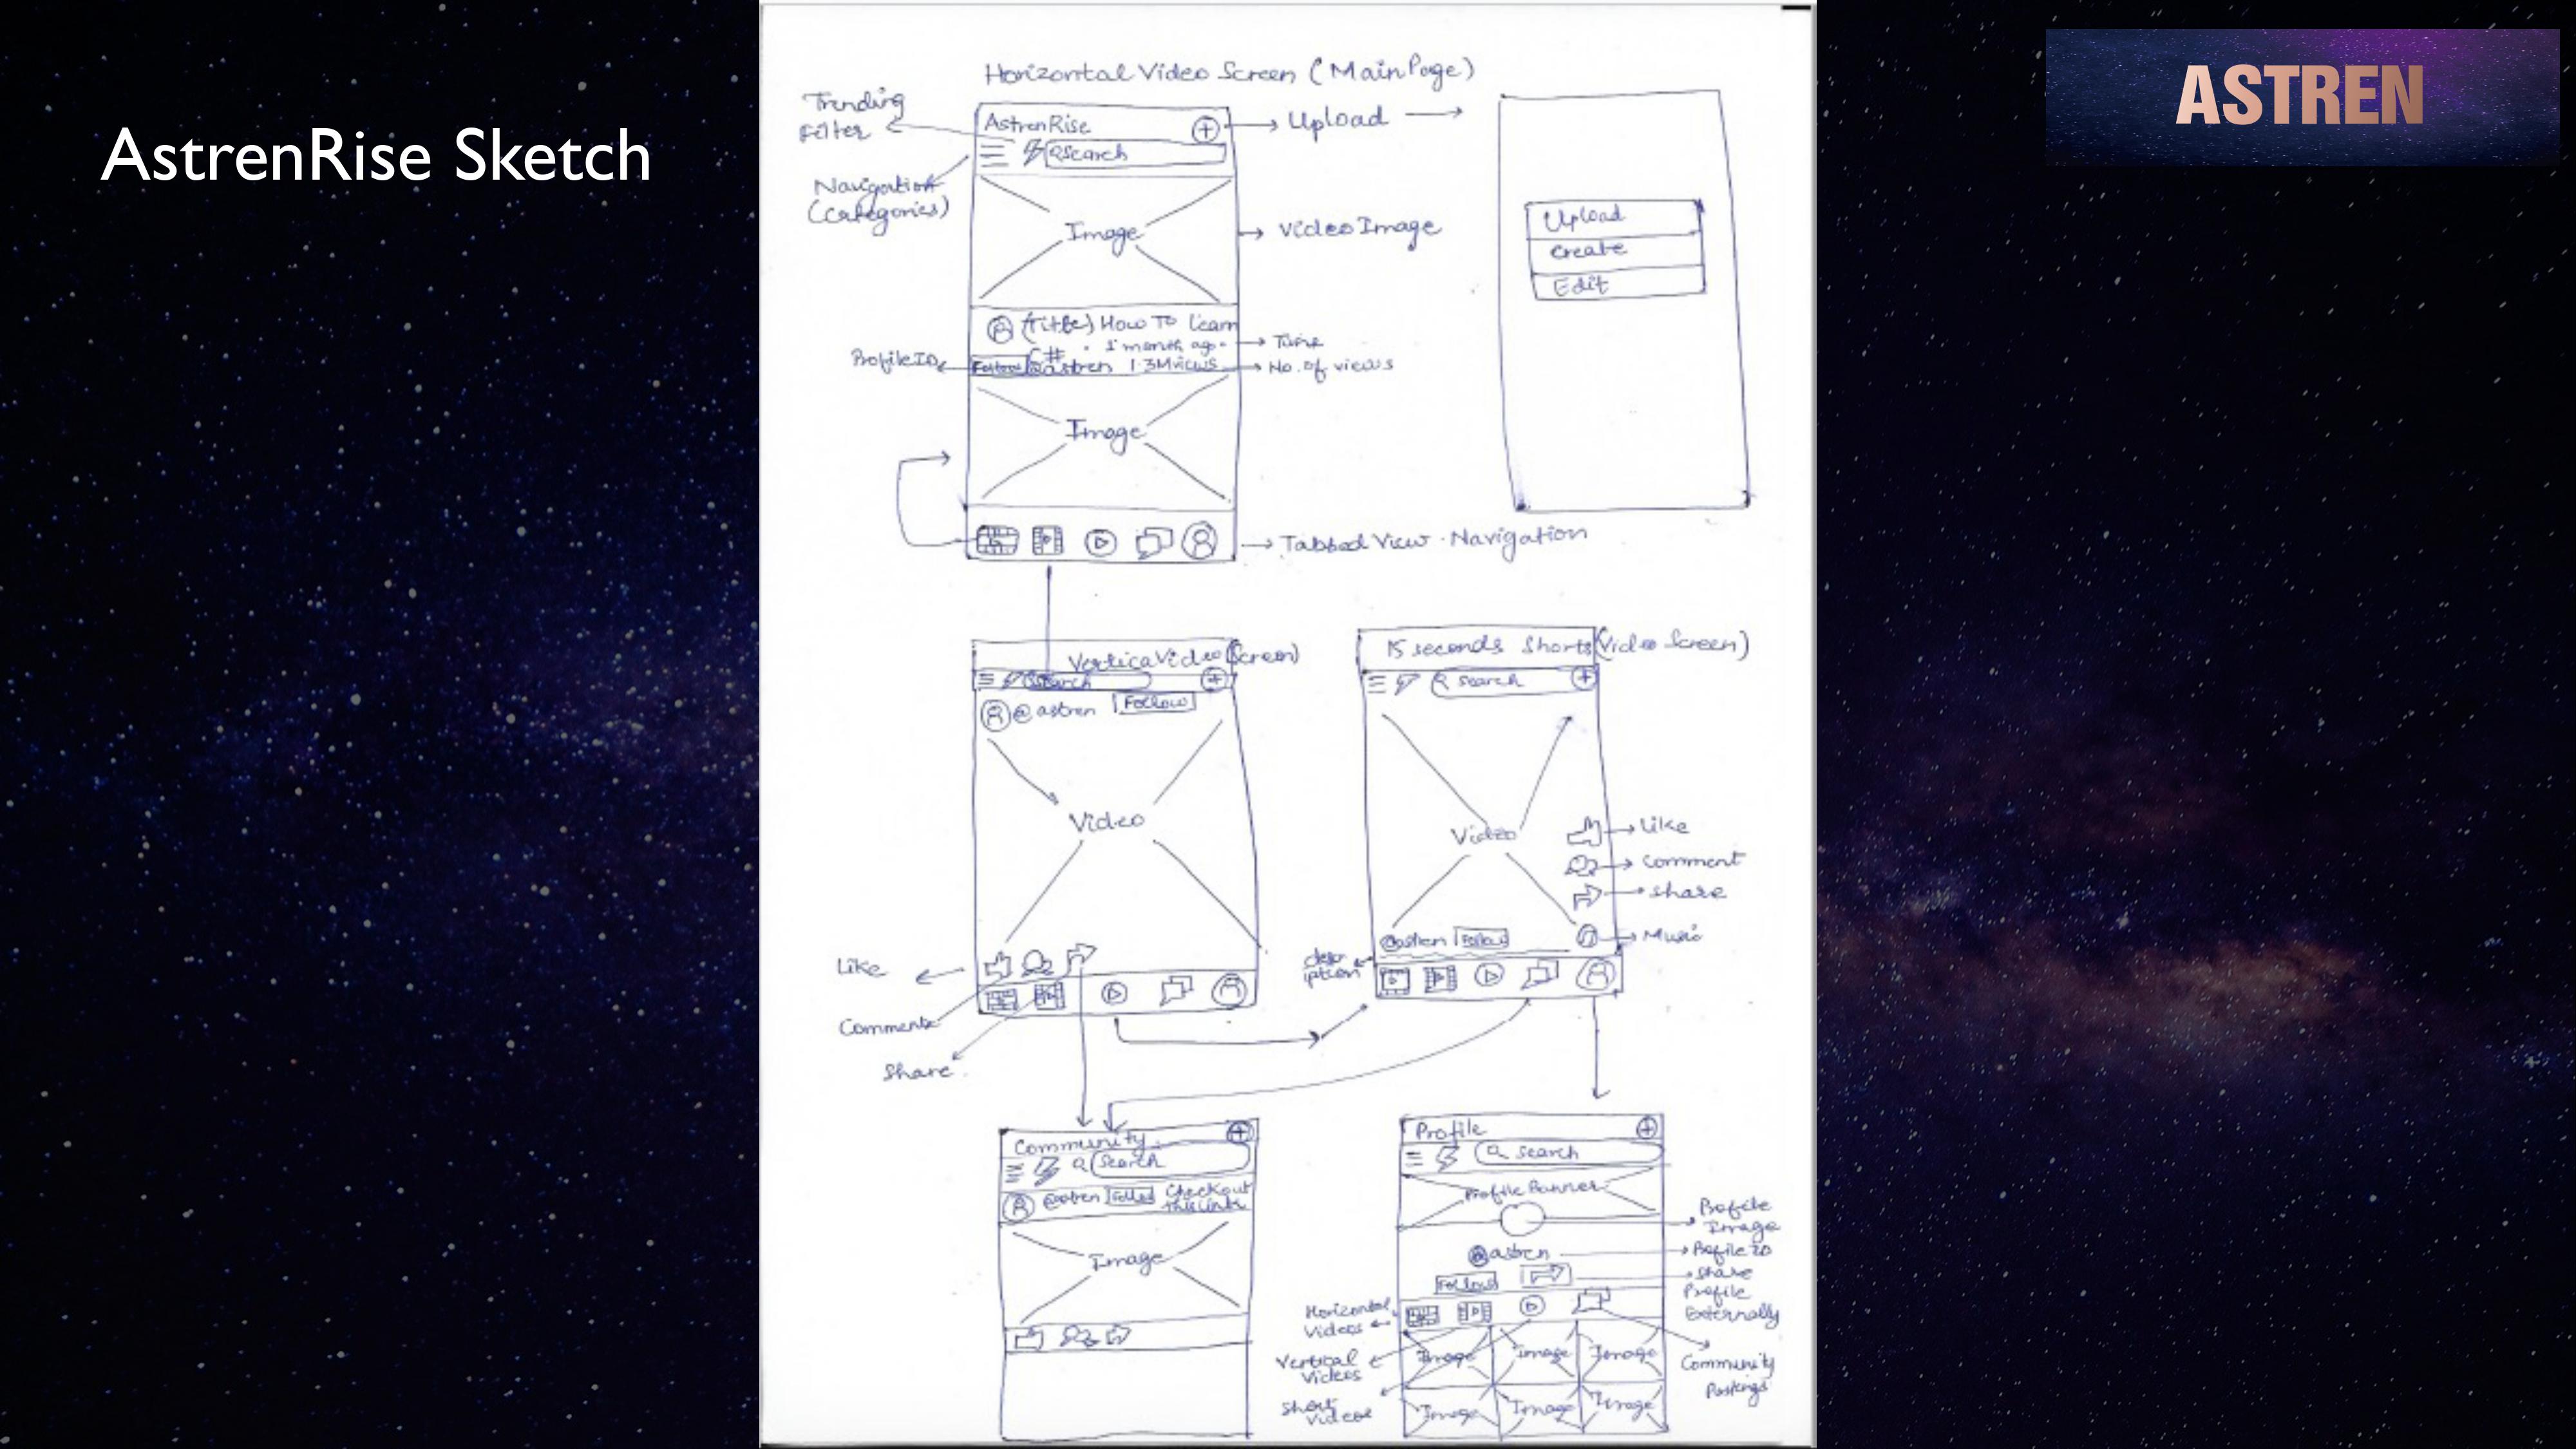 AstrenRise Sketch
ASTREN
Horizontal Video Screen (Main Page)
Trending
Filter
AstrenRise
Upload
Search
Navigation
(Categories)
Image
Video Image
Upload
Create
Edit
(Title) How To learn
C#
1 month ago
Time
ProfileID
Follow
@astren
1.3M views
No. of views
Image
Tabbed View - Navigation
Vertica Video (Screen)
Search
@ astren
Follow
Video
Like
Comments
Share
15 seconds Shorts (Video Screen)
search
Video
Like
Comment
share
Music
@astren
Follow
descr
iption
Community
Search
@astren
Checkout
this link
Image
Profile
search
Profile Banner
Profile
Image
@astren
Profile ID
Follow
share
Profile
Externally
Horizontal
Videos
Vertical
Videos
Short
Videos
Community
Postings
Image Image Image
Image Image Image